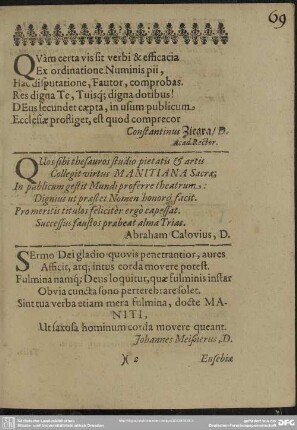 69
QVàm certa vis sit verbi & efficacia
Ex ordinatione Numinis pii,
Hac disputatione, Fautor, comprobas.
Res digna Te, Tuisq; digna dotibus!
DEus secundet cæpta, in usum publicum
Ecclesiæ profliget, est quod comprecor
Constantinus Zicgra/ D.
Acad. Rector.
QUos sibi thesauros studio pietatis & artis
Collegit virtus MANITIANA Sacræ;
In publicum gestit Mundi proferre theatrum:
Dignius ut præstet Nomen honorq; facit.
Pro meritis titulos feliciter ergò capessat.
Successus faustos præbeat alma Trias.
Abraham Calovius, D.
SErmo Dei gladio quovis penetrantior, aures
Afficit, atq; intus corda movere potest.
Fulmina namq; Deus loquitur, quæ fulminis instar
Obvia cuncta sono perterebrare solet.
Sint tua verba etiam mera fulmina, docte MA-
NITI,
Ut saxosa hominum corda movere queant.
Johannes Meisnerus, D.
)( 2
Eusebiæ